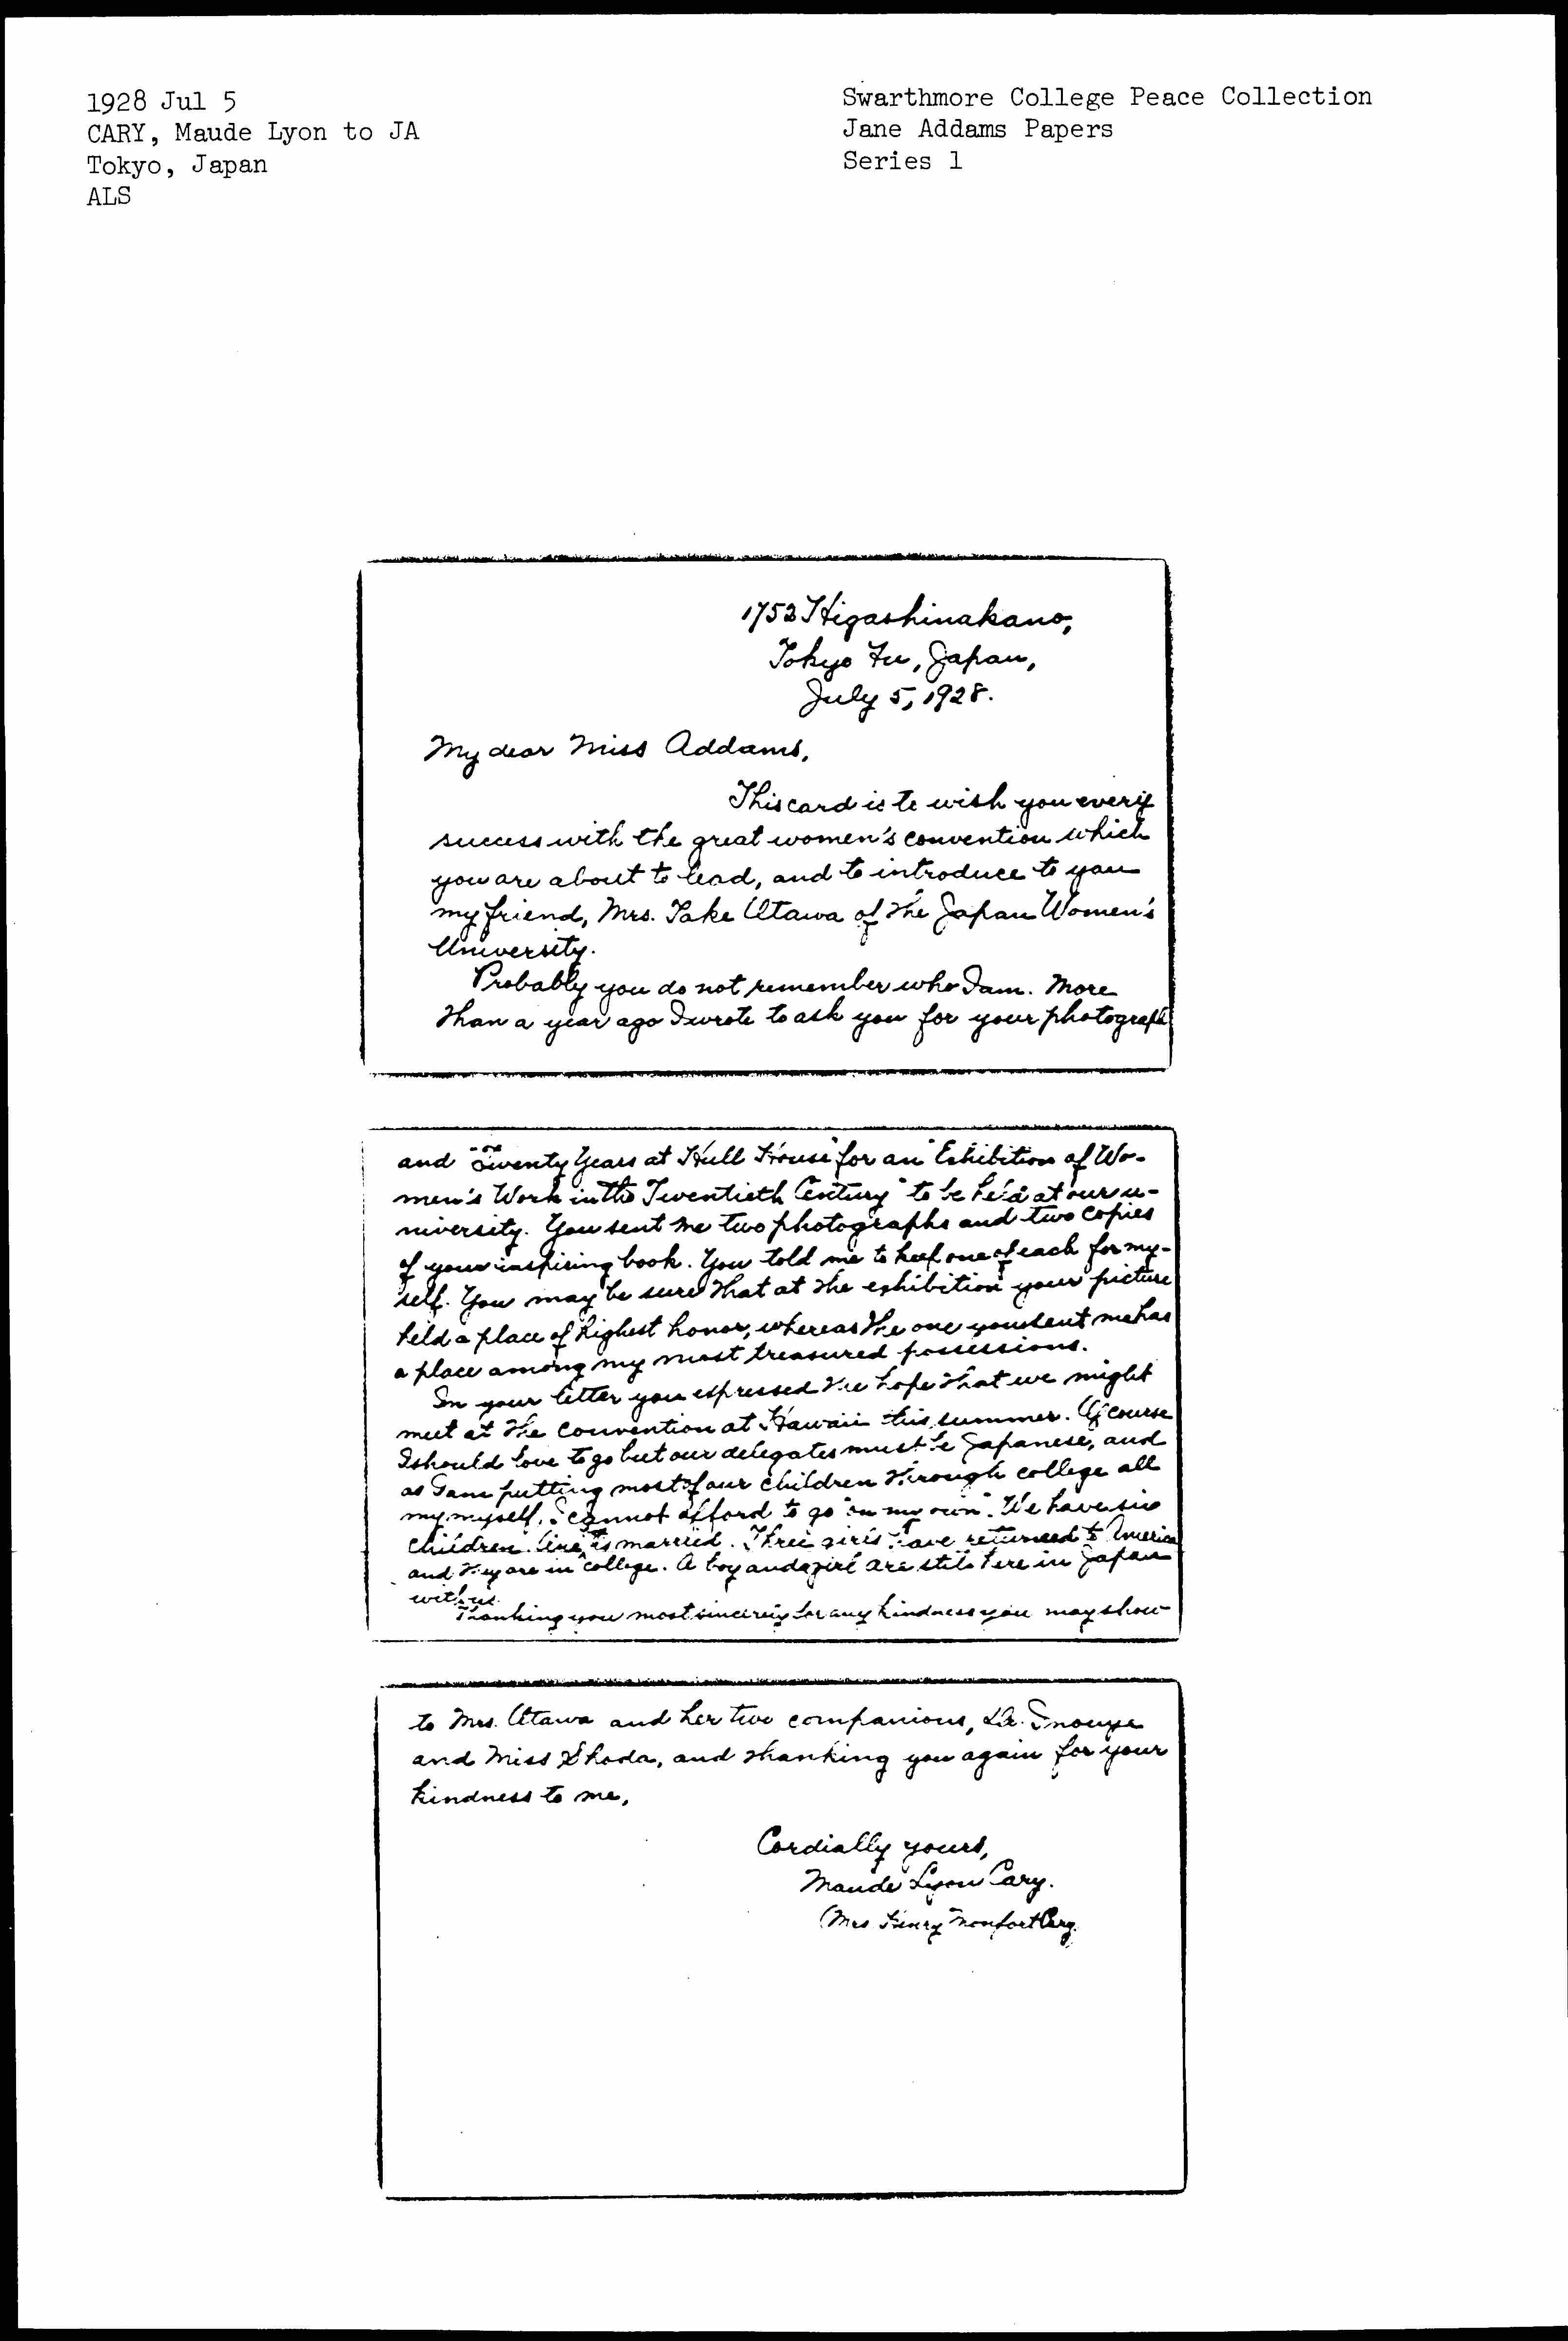 1928 Jul 5
CARY, Maude Lyon to JA
Tokyo, Japan
ALS
Swarthmore College Peace Collection
Jane Addams Papers
Series 1
1752 Higashinakano,
Tokyo Fu, Japan,
July 5, 1928.
My dear Miss Addams,
This card is to wish you every
success with the great women's convention which
you are about to lead, and to introduce to you
my friend, Mrs. Take Utawa of the Japan Women's
University.
Probably you do not remember who I am. More
than a year ago I wrote to ask you for your photograph
and "Twenty Years at Hull House" for an "Exhibition of Wo-
men's Work in the Twentieth Century" to be held at our u-
niversity. You sent me two photographs and two copies
of your inspiring book. You told me to keep one of each for my-
self. You may be sure that at the exhibition your picture
held a place of highest honor, whereas the one you sent me has
a place among my most treasured possessions.
In your letter you expressed the hope that we might
meet at the convention at Hawaii this summer. Of course
I should love to go but our delegates must be Japanese, and
as I am putting most of our children through college all
my myself, I cannot afford to go "on my own". We have six
children. One is married. Three girls have returned to America
and they are in college. A boy and a girl are still here in Japan
with us.
Thanking you most sincerely for any kindness you may show
to Mrs. Utawa and her two companions, Dr. Inouye
and Miss Shoda, and thanking you again for your
kindness to me,
Cordially yours,
Maude Lyon Cary.
(Mrs Henry Monfort Cary.